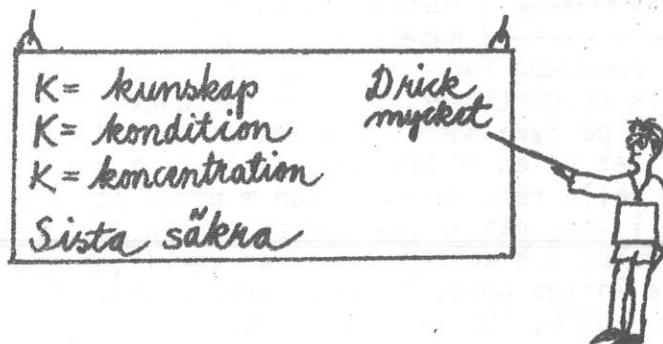 K = kunskap
K = kondition
K = koncentration
Sista säkra
Drick
mycket